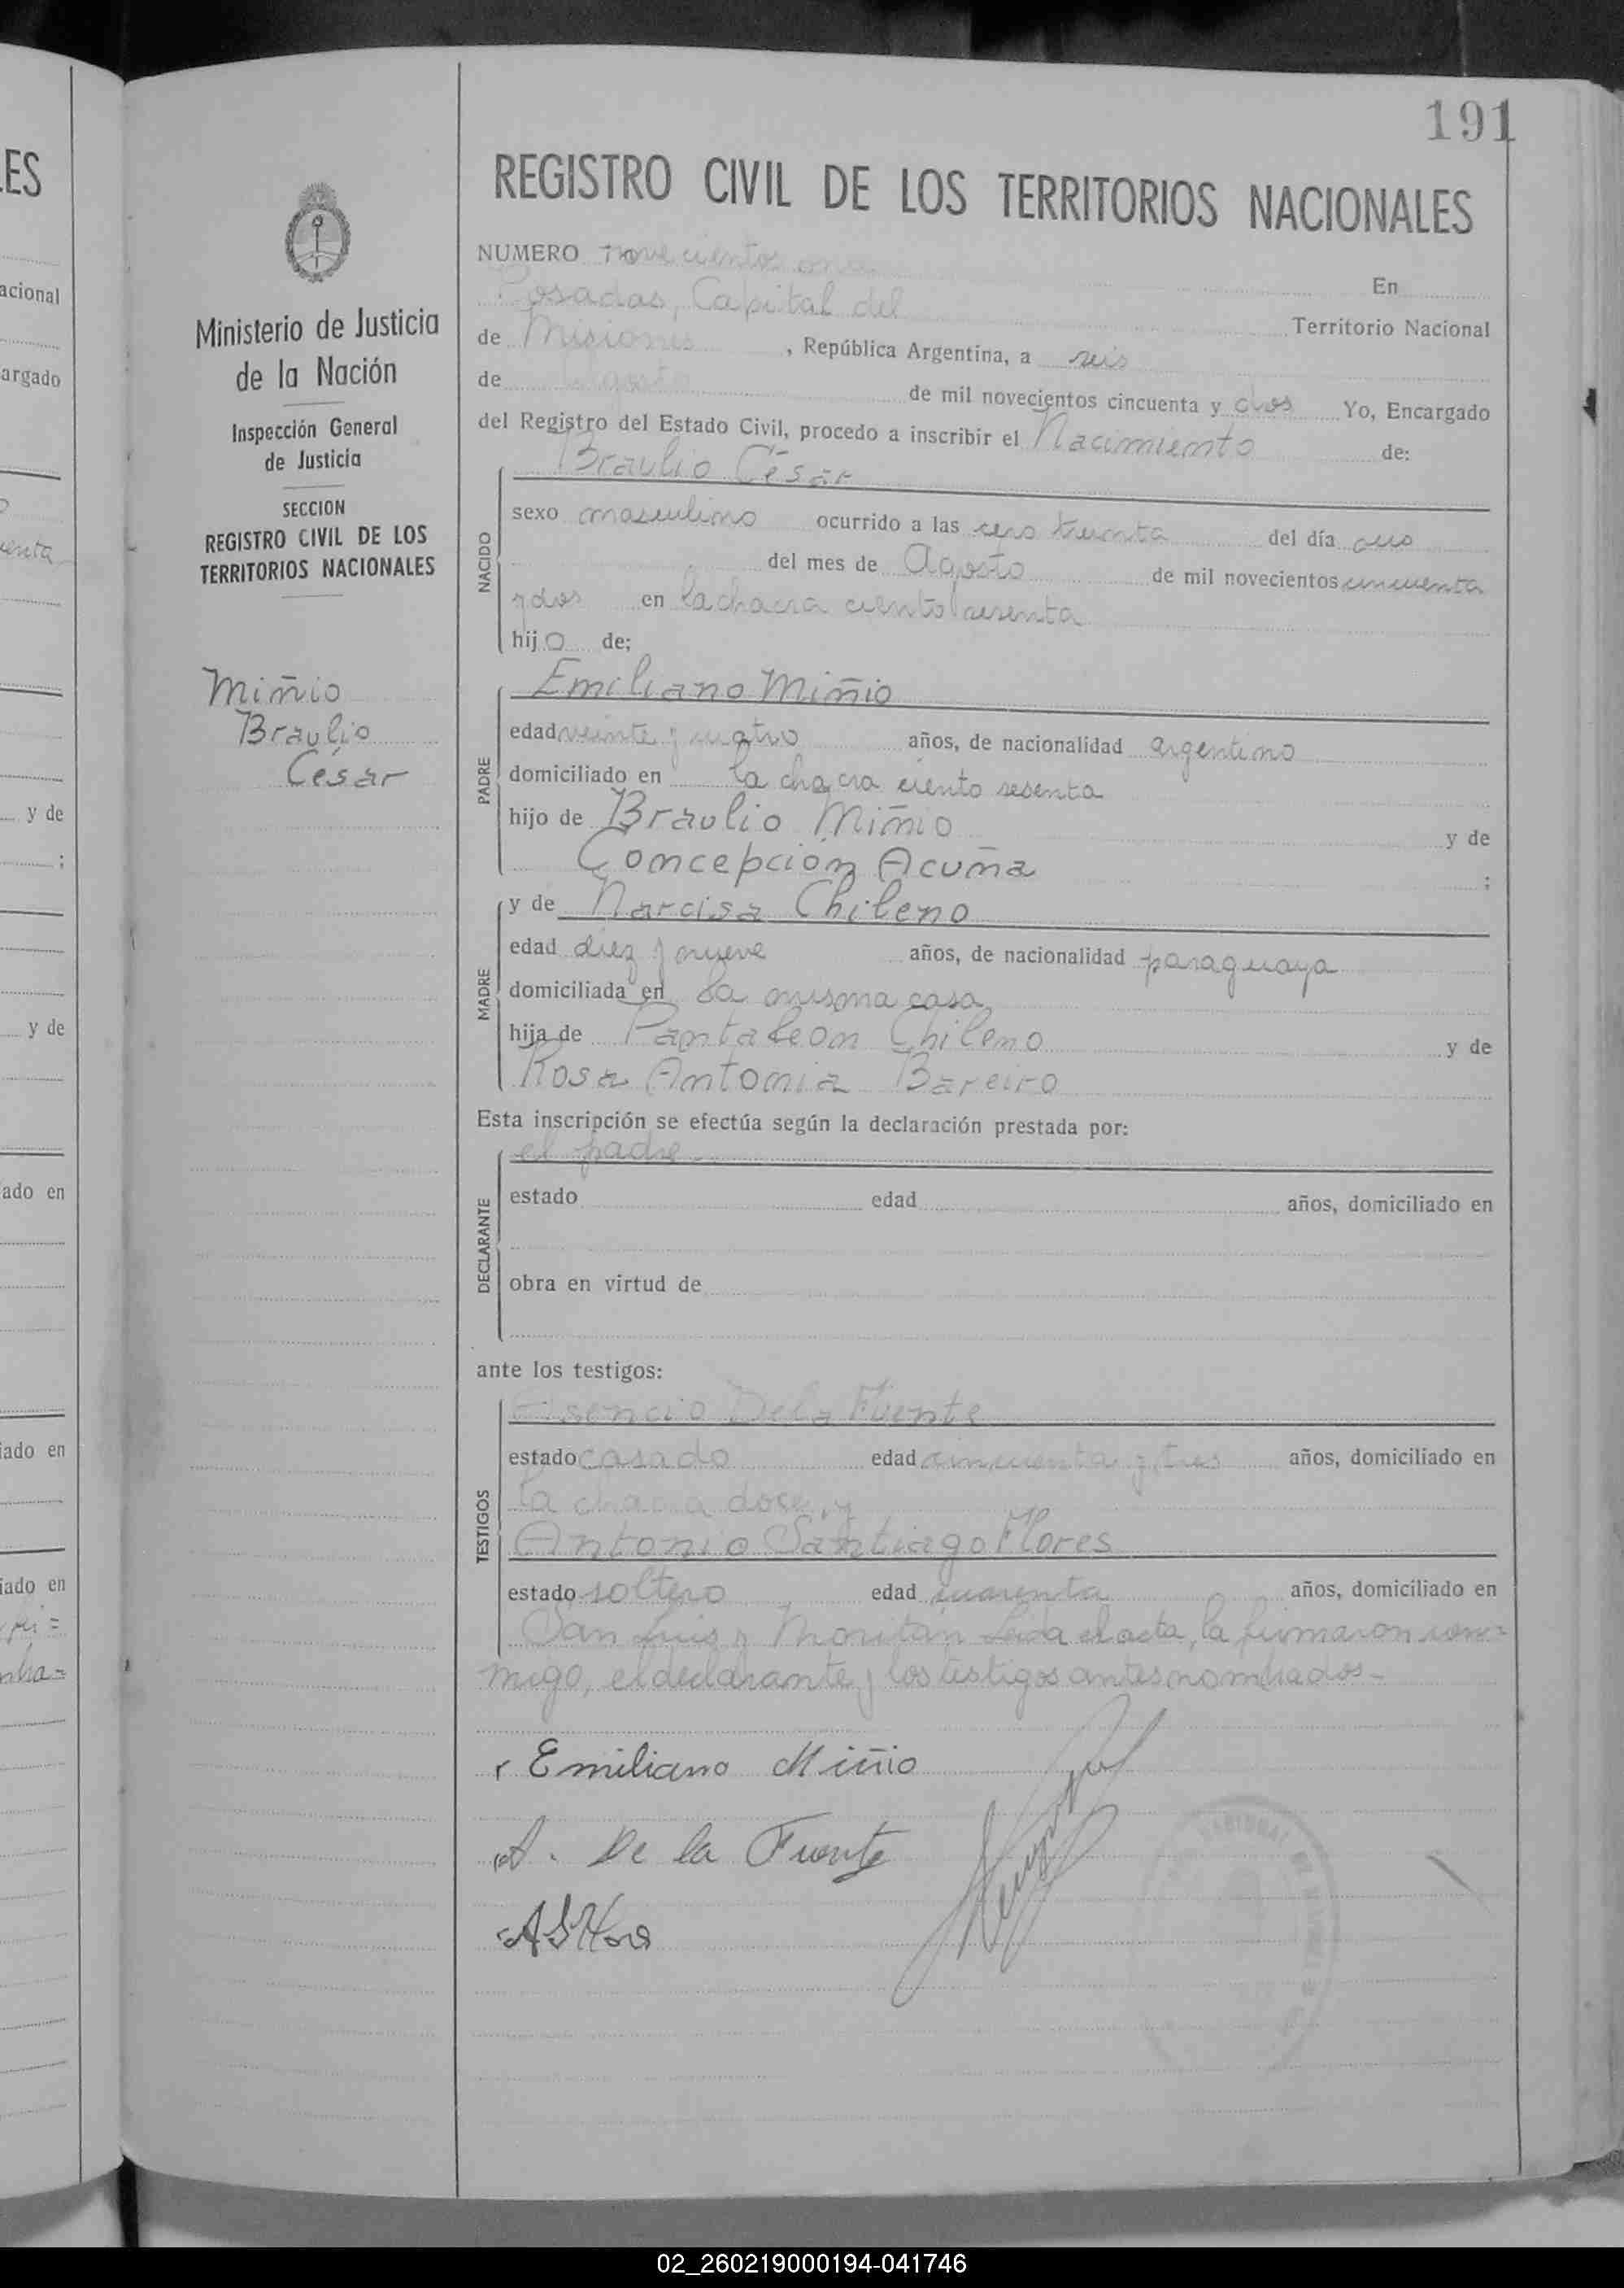 191
REGISTRO CIVIL DE LOS TERRITORIOS NACIONALES
NUMERO novecientos once
En
Posadas, Capital del
Territorio Nacional
de Misiones, República Argentina, a seis
de Agosto de mil novecientos cincuenta y dos Yo, Encargado
del Registro del Estado Civil, procedo a inscribir el Nacimiento de:
Braulio César
NACIDO
sexo masculino ocurrido a las cero treinta del día
del mes de Agosto de mil novecientos cincuenta
y dos en la chacra ciento sesenta
hijo de;
PADRE
Emiliano Miñio
edad veinte y cuatro años, de nacionalidad argentino
domiciliado en la chacra ciento sesenta
hijo de Braulio Miñio y de
Concepción Acuña ;
MADRE
y de Narcisa Chileno
edad diez y nueve años, de nacionalidad paraguaya
domiciliada en la misma casa
hija de Pantaleon Chileno y de
Rosa Antonia Bareiro
Esta inscripción se efectúa según la declaración prestada por:
DECLARANTE
el padre
estado edad años, domiciliado en
obra en virtud de
ante los testigos:
TESTIGOS
De la Fuente
estado casado edad cincuenta y tres años, domiciliado en
la chacra doce, y
Antonio Santiago Flores
estado soltero edad cuarenta años, domiciliado en
San Luis y Moritán Leida el acta, la firmaron con=
migo, el declarante y los testigos antes nombrados-
Emiliano Miñio
A. De la Fuente
Ministerio de Justicia
de la Nación
Inspección General
de Justicia
SECCION
REGISTRO CIVIL DE LOS
TERRITORIOS NACIONALES
Miñio
Braulio
César
ES
acional
argado
enta
y de
;
y de
ado en
iado en
iado en
02_260219000194-041746